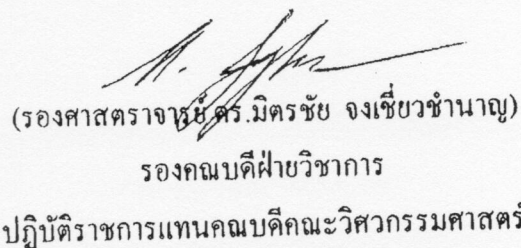 (รองศาสตราจารย์ ดร.มิตรชัย จงเชี่ยวชำนาญ)
รองคณบดีฝ่ายวิชาการ
ปฏิบัติราชการแทนคณบดีคณะวิศวกรรมศาสตร์